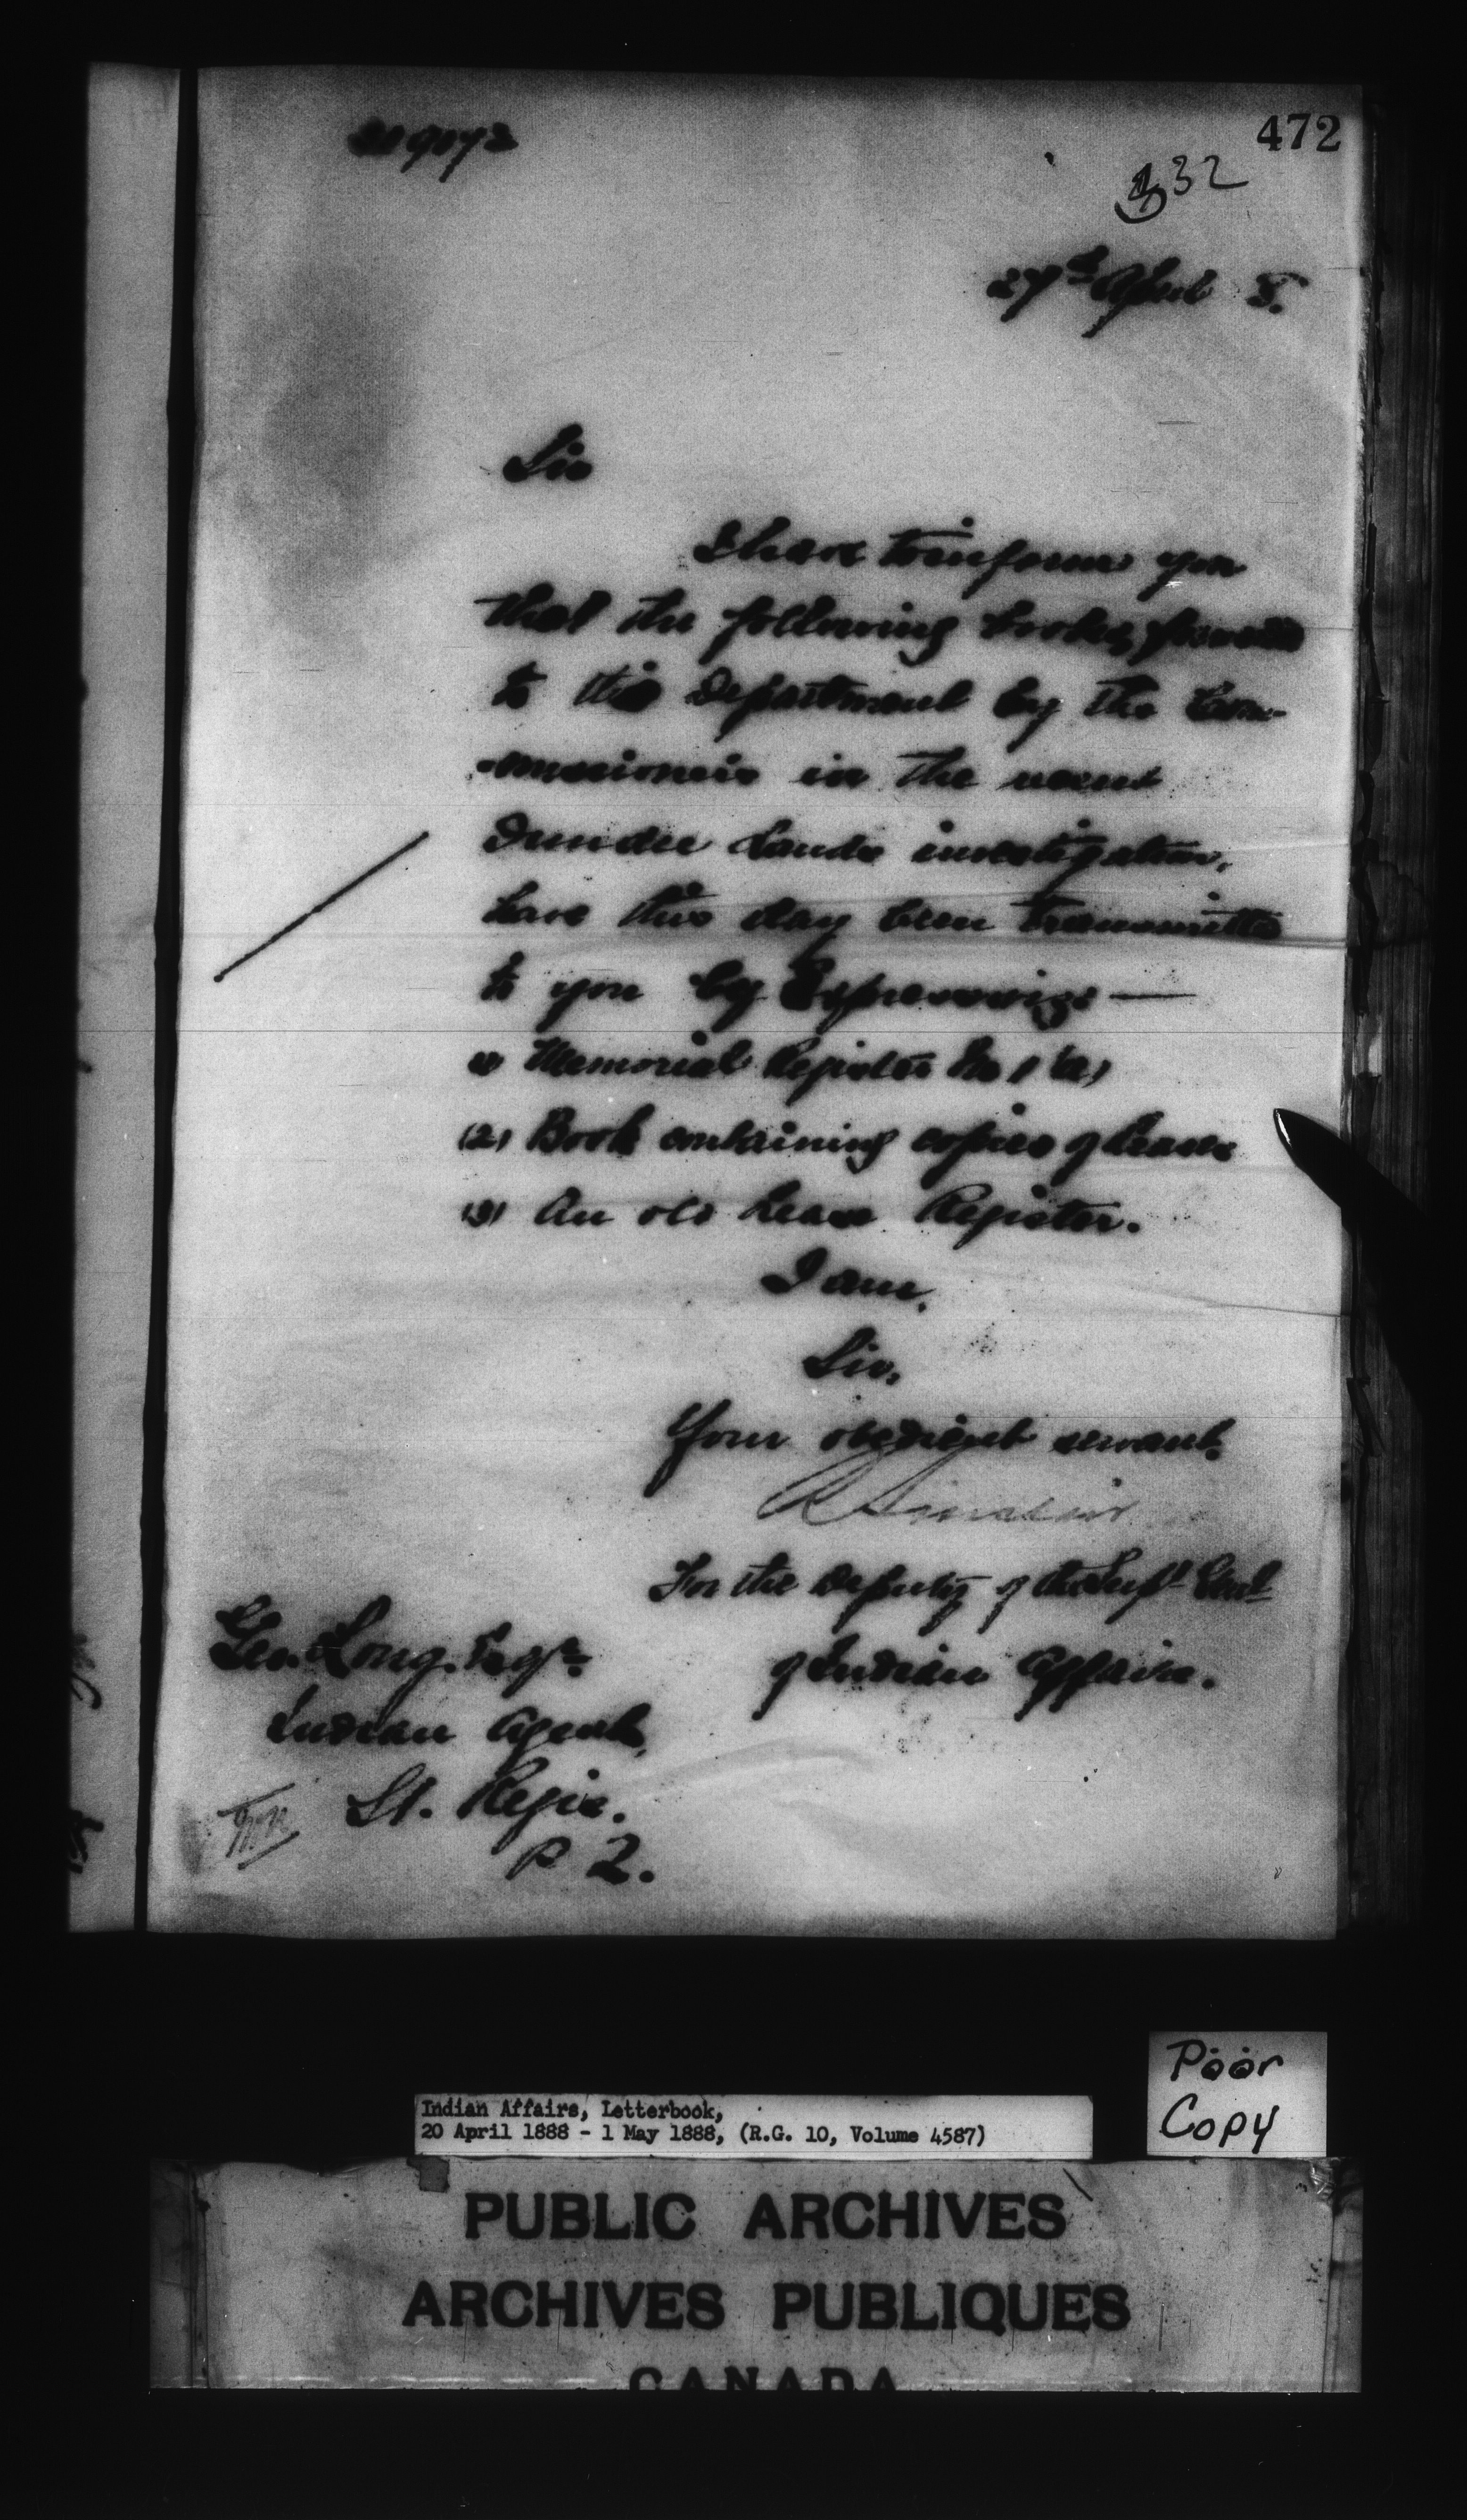 472
332
27th April 8.
Sir
I have to inform you
that the following books, forwarded
to this Department by the Com-
-missioners in the recent
Dundee Lands investigation,
have this day been transmitted
to you by Express viz: —
(1) Memorial Register No 1 (a)
(2) Book containing copies of Leases
(3) An old Lease Register.
I am,
Sir,
Your obedient servant.
R Sinclair
For the Deputy of the Supt Genl
of Indian Affairs.
Geo. Long. Esqr.
Indian Agent,
St. Regis.
P 2.
Indian Affairs, Letterbook,
20 April 1888 - 1 May 1888, (R.G. 10, Volume 4587)
Poor
Copy
PUBLIC ARCHIVES
ARCHIVES PUBLIQUES
CANADA